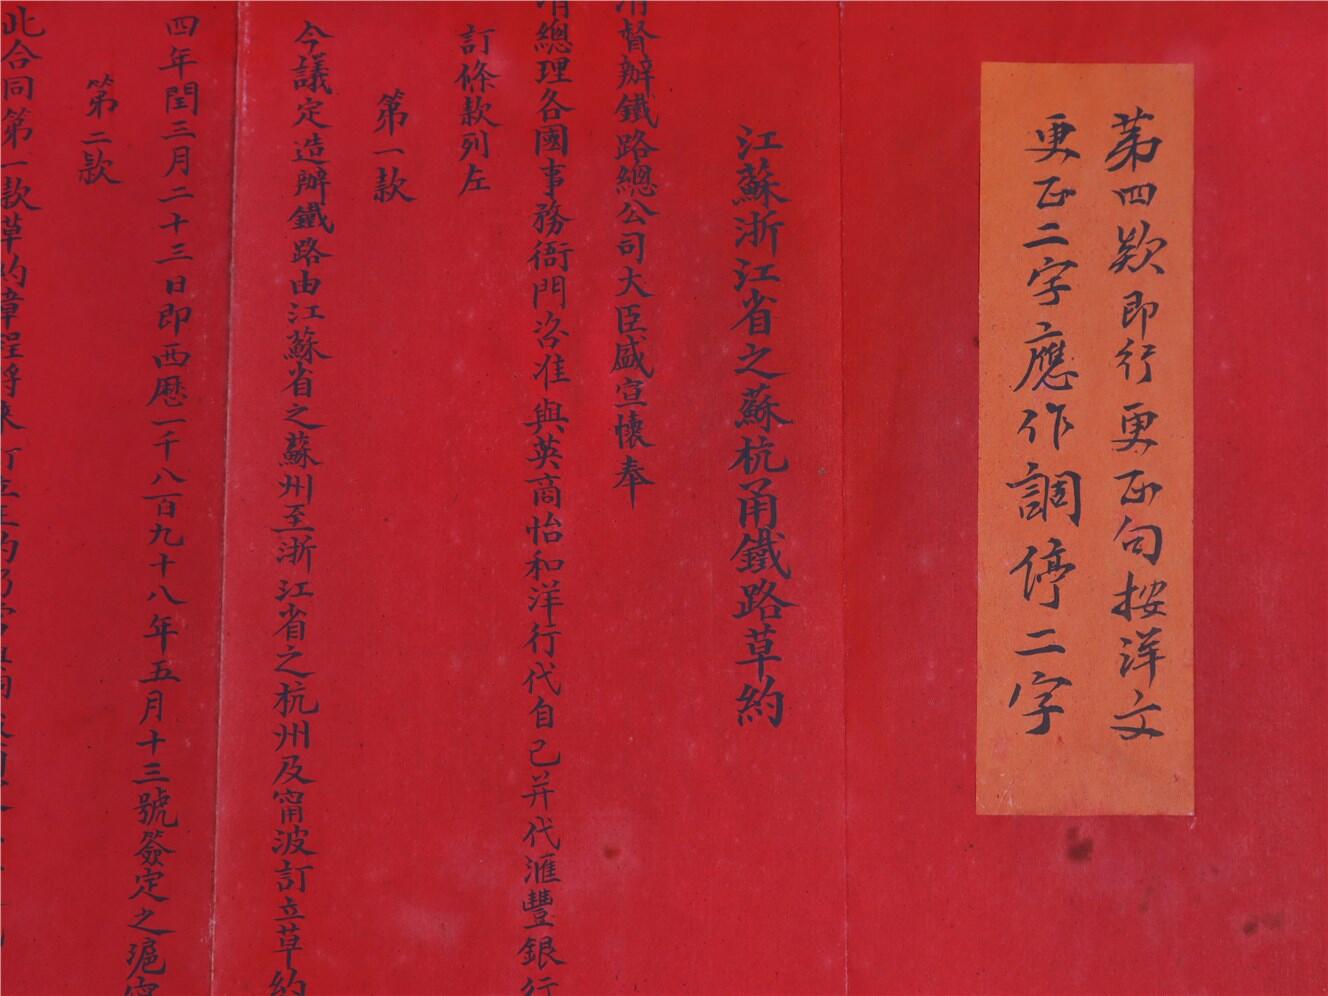 第四欵即行更正句按洋文
更正二字應作調停二字
江蘇浙江省之蘇杭甬鐵路草約
清督辦鐵路總公司大臣盛宣懷奉
清總理各國事務衙門咨准與英商怡和洋行代自己并代滙豐銀行
訂條款列左
第一款
今議定造辦鐵路由江蘇省之蘇州至浙江省之杭州及甯波訂立草約
四年閏三月二十三日即西曆一千八百九十八年五月十三號簽定之滬甯
第二款
此合同第一款草約章程將來訂立正約仍